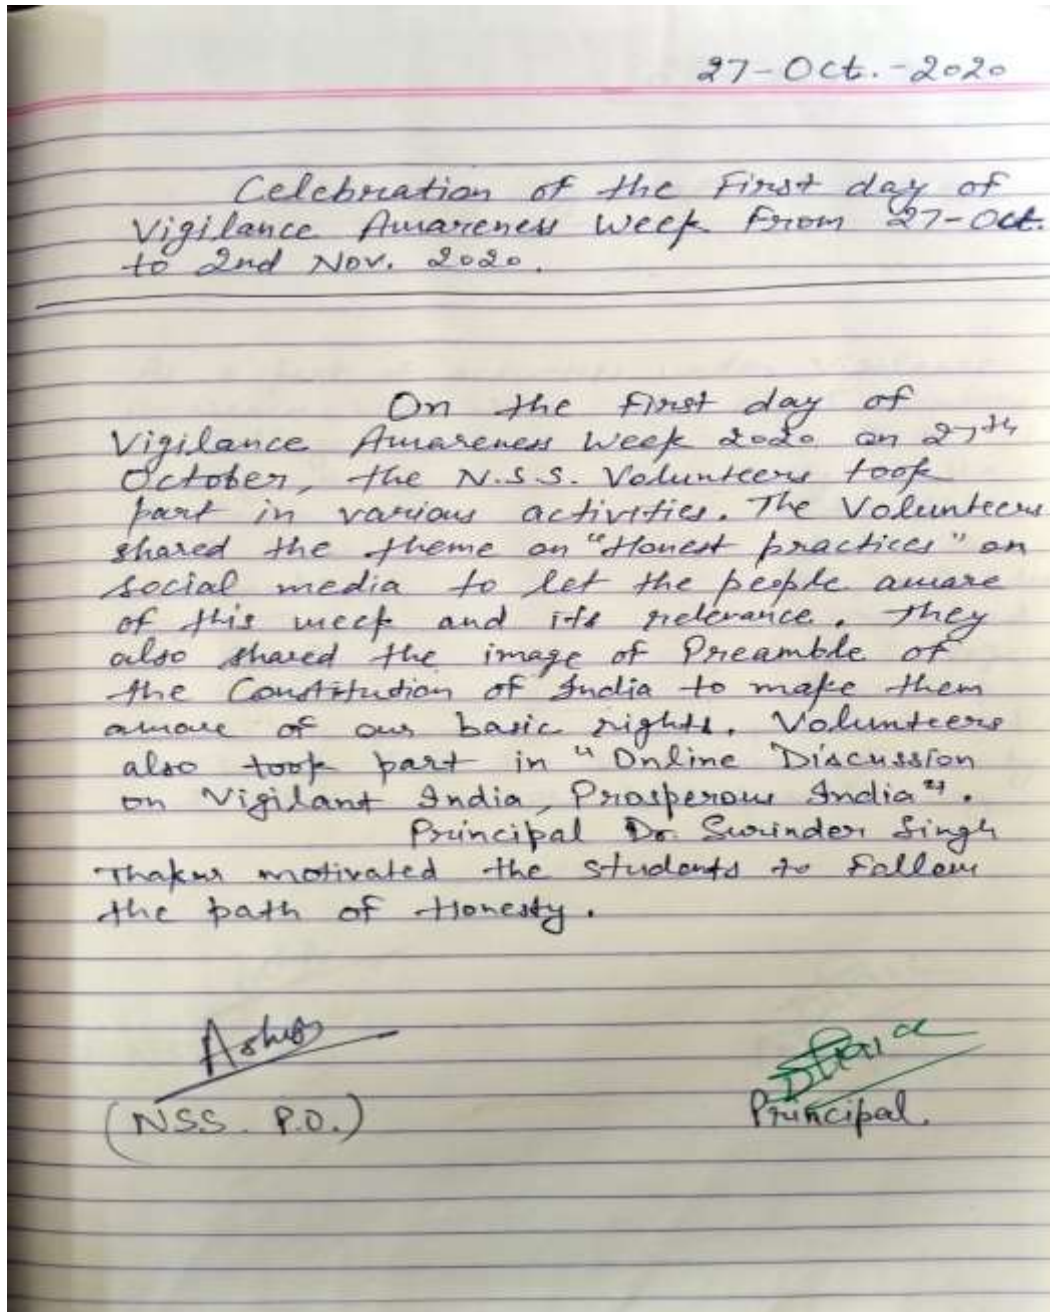 27-Oct.-2020
Celebration of the First day of
Vigilance Awareness Week From 27-Oct.
to 2nd Nov. 2020.
On the First day of
Vigilance Awareness Week 2020 on 27th
October, the N.S.S. Volunteers took
part in various activities. The Volunteers
shared the theme on "Honest practices" on
social media to let the people aware
of this week and its relevance. They
also shared the image of Preamble of
the Constitution of India to make them
aware of our basic rights. Volunteers
also took part in "Online Discussion
on Vigilant India, Prosperous India".
Principal Dr. Surinder Singh
Thakur motivated the students to Follow
the path of Honesty.
(NSS. P.O.)
Principal.